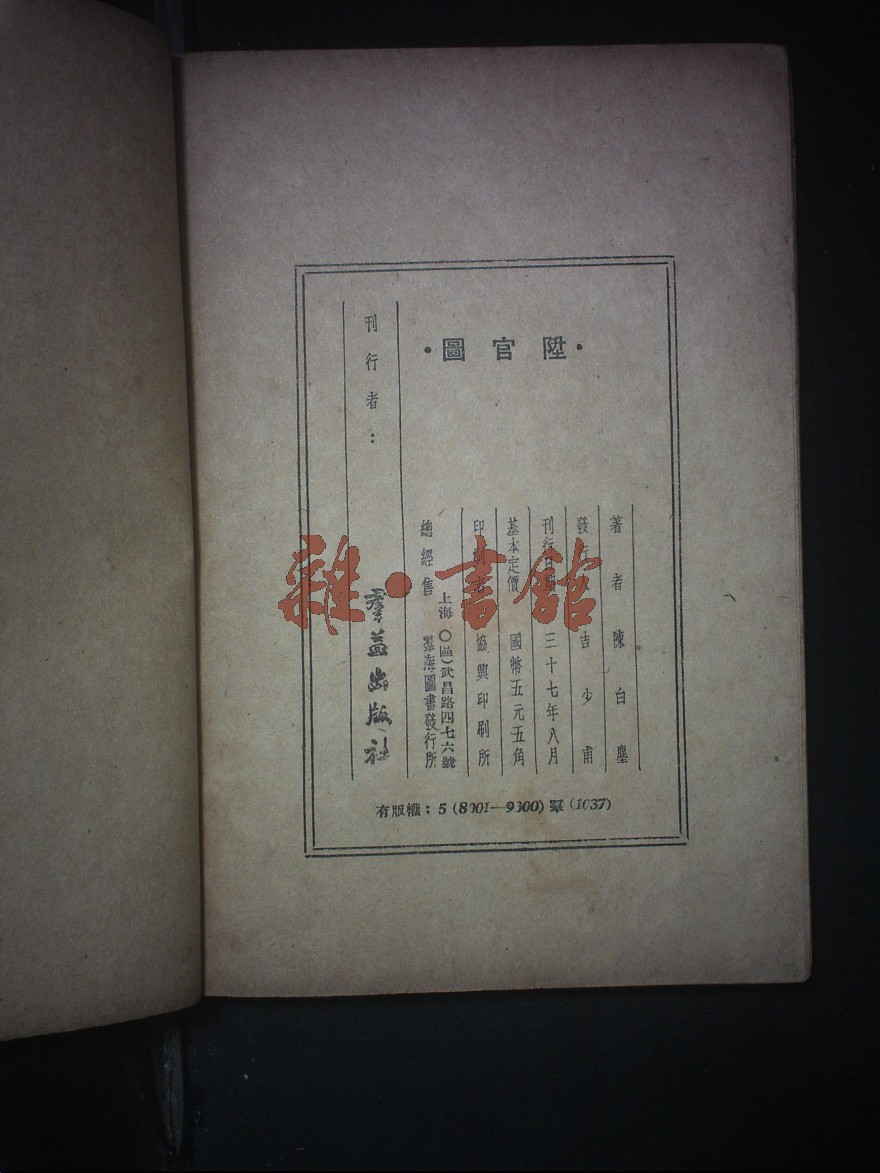 ·陞官圖·
著者 陳白塵
發行人 吉少甫
刊行日期 三十七年八月
基本定價 國幣五元五角
印刷者 協興印刷所
總經售
上海(○區)武昌路四七六號
羣海圖書發行所
刊行者：
羣益出版社
有版權：5 (8001—9000) 羣 (1037)
雜·書舘